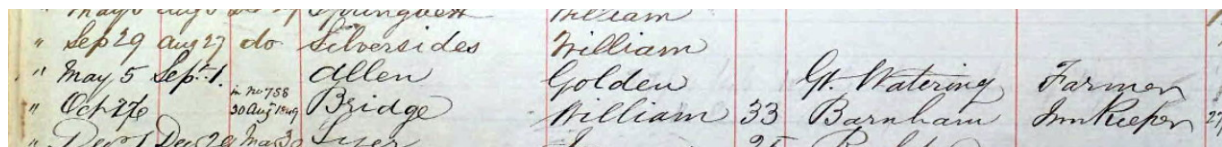 Springett William
" Sep 29 Aug 27 do Silversides William
" May 5 Sept. 1. Allen Golden Gt. Watering Farmer
" Oct 26 in No 788 30 Aug 1849 Bridge William 33 Barnham InnKeeper 27
Dec 29 Mar 30